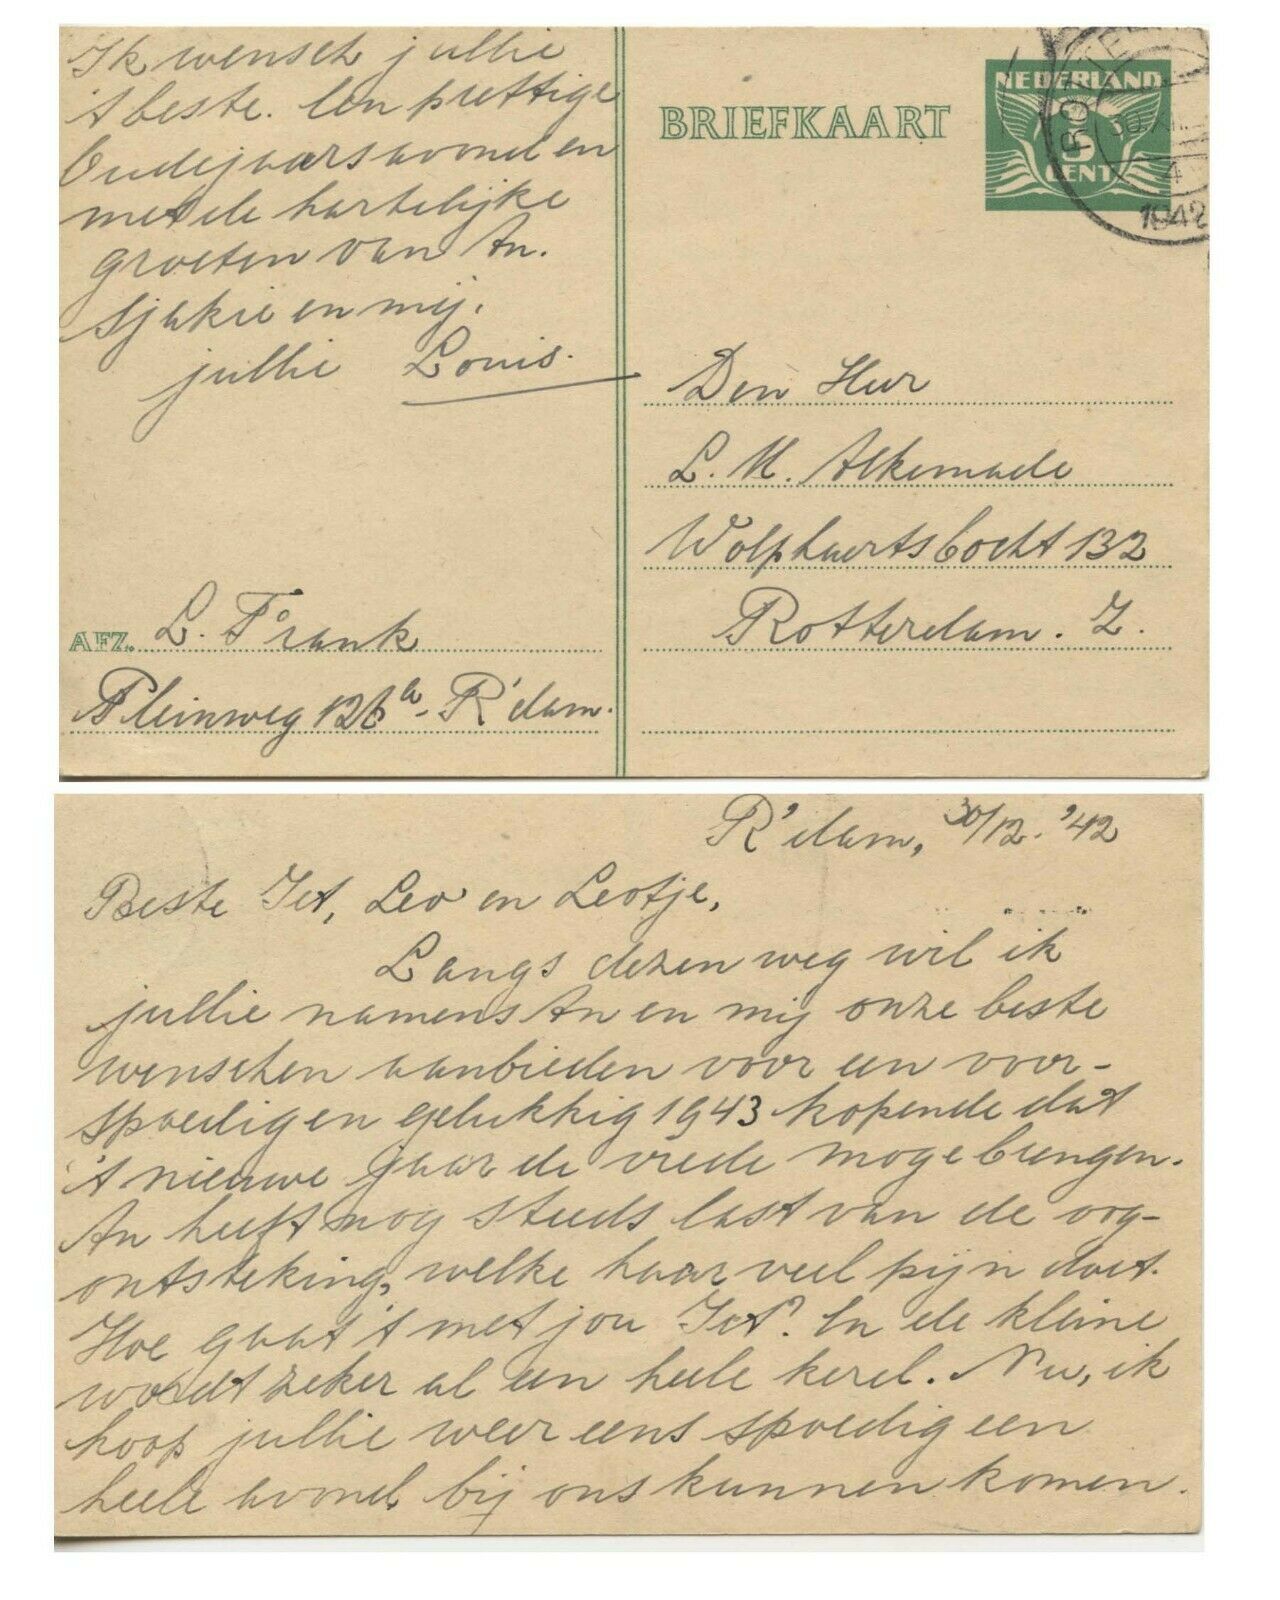 Ik wensch jullie
't beste. Een prettige
Oudejaarsavond en
met de hartelijke
groeten van An.
Sjakie en mij.
jullie Louis.
AFZ. L. Frank
Pleinweg 126a - R'dam.
BRIEFKAART
NEDERLAND
5
CENT
30.XII
4
1942
Den Heer
L. M. Alkemade
Wolphaertsbocht 132
Rotterdam. Z.
R'dam, 30/12. '42
Beste Jet, Leo en Leotje,
Langs dezen weg wil ik
jullie namens An en mij onze beste
wenschen aanbieden voor een voor-
spoedig en gelukkig 1943 hopende dat
't nieuwe jaar de vrede moge brengen.
An heeft nog steeds last van de oog-
ontsteking, welke haar veel pijn doet.
Hoe gaat 't met jou Jet? En de kleine
wordt zeker al een heele kerel. Nu, ik
hoop jullie weer eens spoedig een
heele avond bij ons kunnen komen.